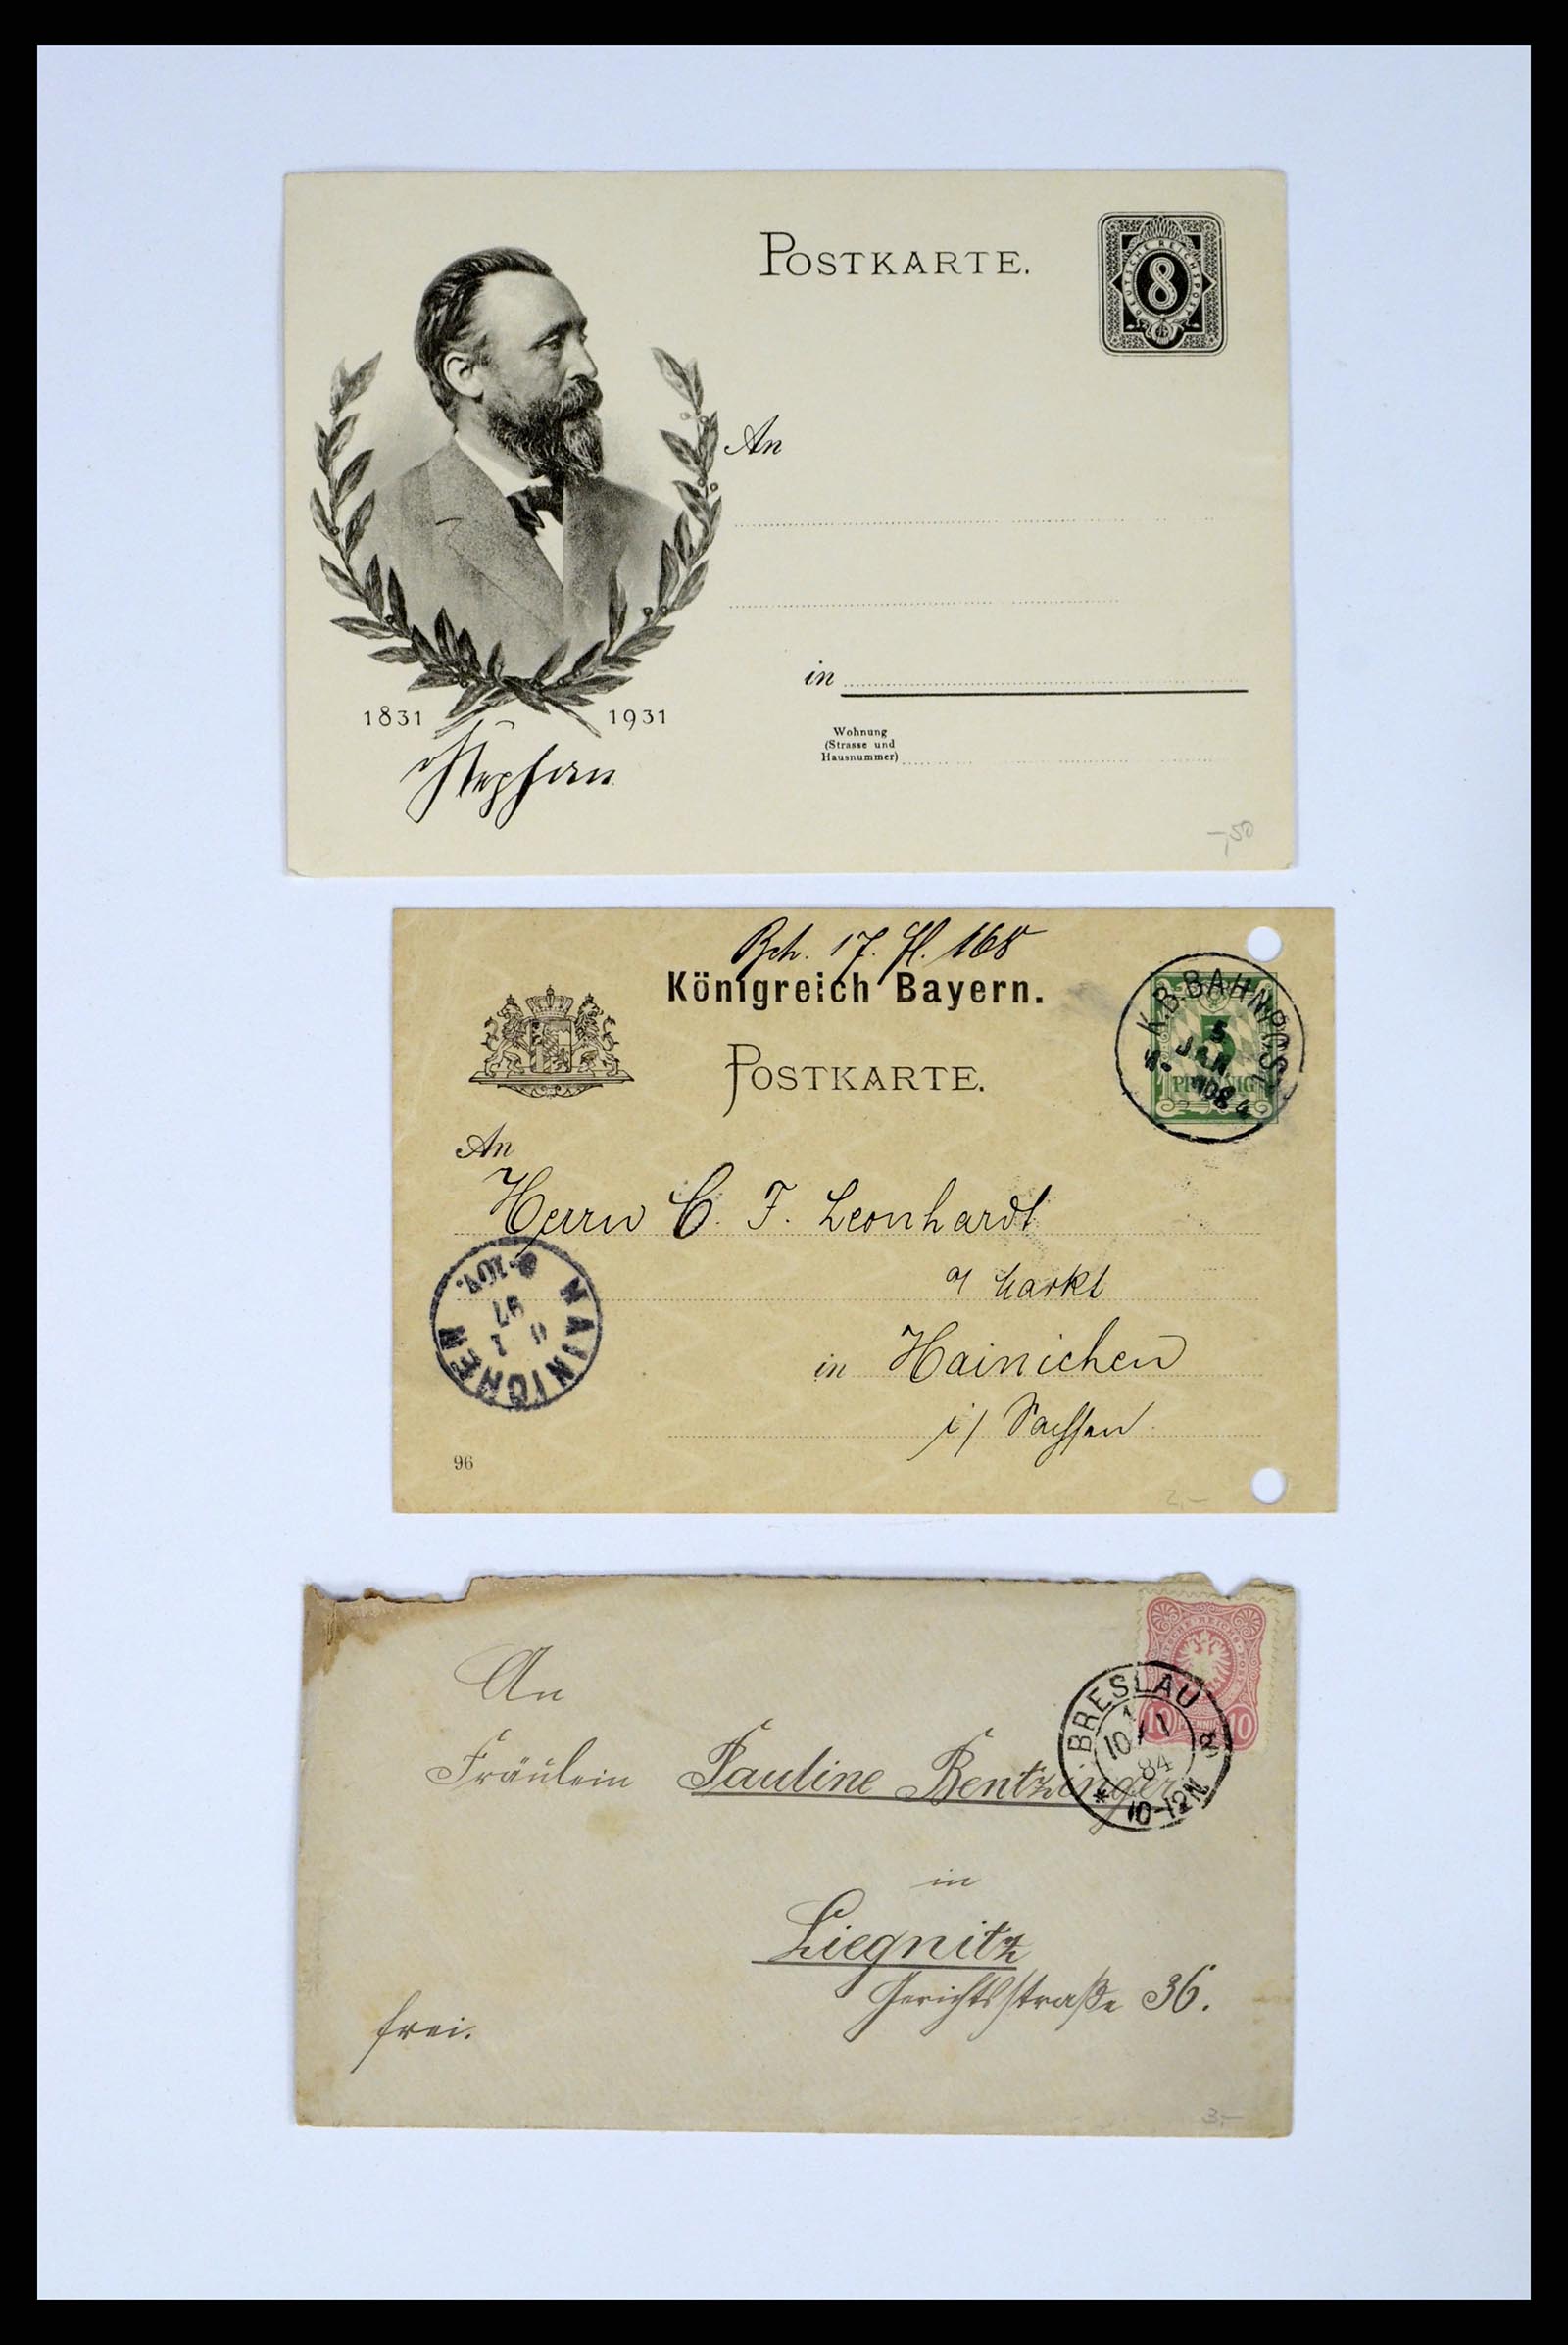 POSTKARTE.
DEUTSCHE REICHSPOST
8
An
in
1831 1931
Stephan
Wohnung
(Strasse und
Hausnummer)
-,50
Bch. 17. fl. 168
Königreich Bayern.
POSTKARTE.
K.B.BAHNPOST
5
JAN
PFENNIG
An
Herrn C. F. Leonhardt
a/ Markt
in Hainichen
i/ Sachsen
HAINICHEN
6 1
97
10V.
96
2,-
DEUTSCHE REICHS-POST
10 PFENNIG 10
BRESLAU
1
10/1
84
* 10-12N
An
Fräulein Pauline Bentzinger
in
Liegnitz
Gerichtsstraße 36.
frei.
3,-